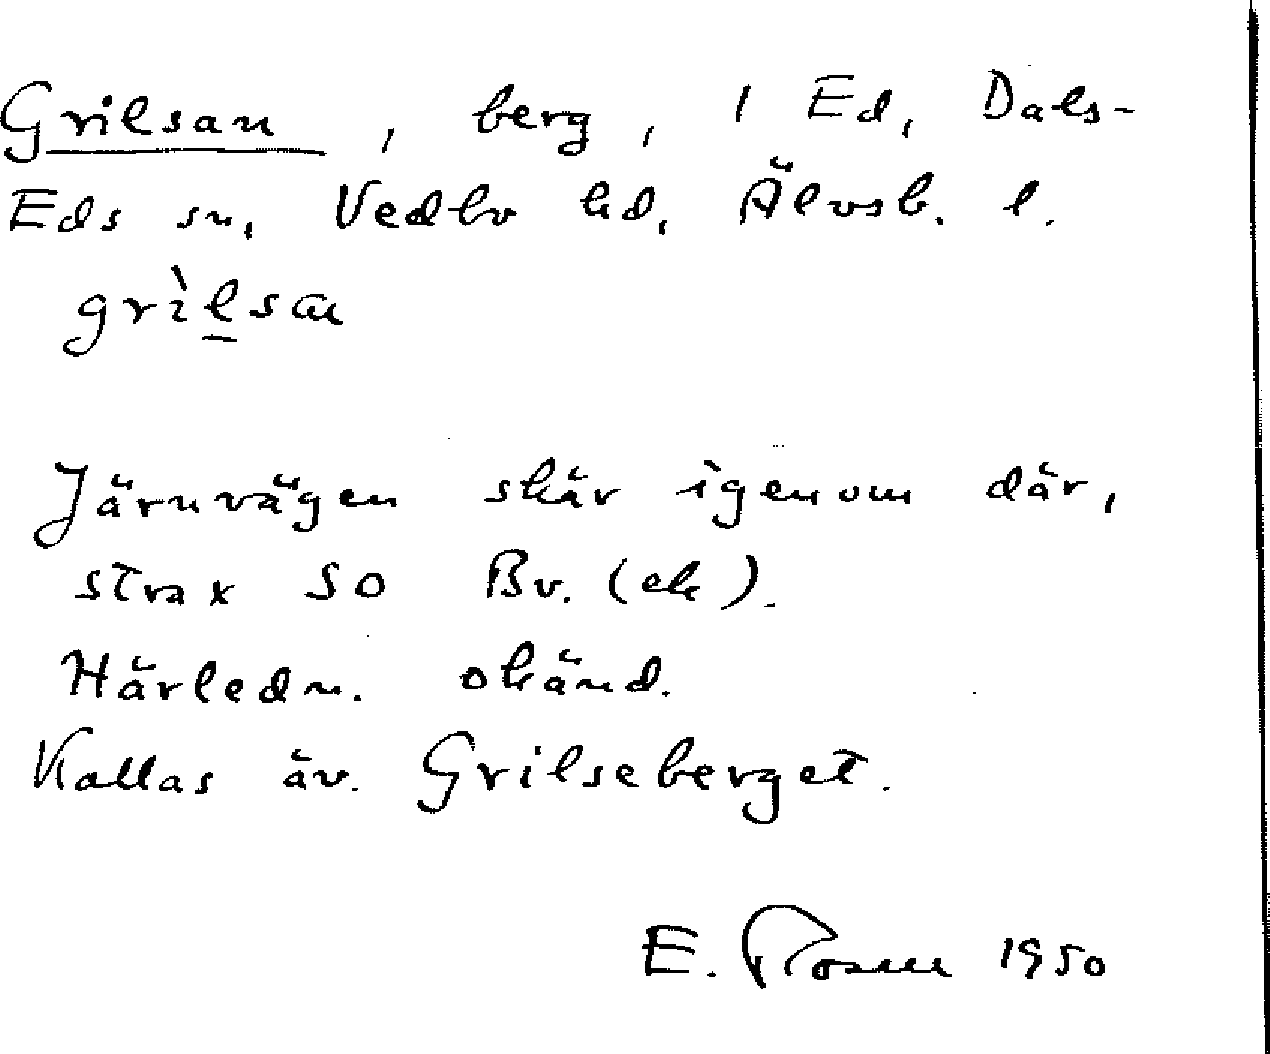 Grilsan, berg, 1 Ed, Dals-
Eds sn, Vedbo hd, Älvsb. l.
grìlsan
Järnvägen skär igenom där,
strax SO Bv. (ek).
Härledn. okänd.
Kallas äv. Grilseberget.
E. Rosén 1950